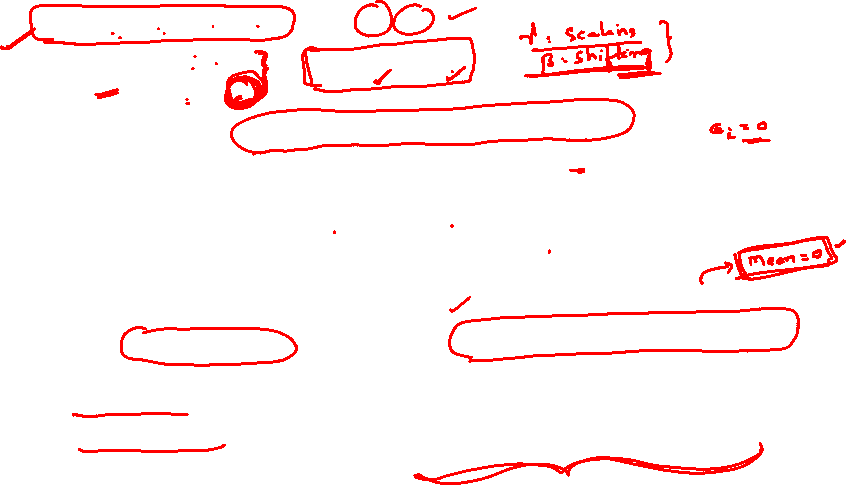 γ: Scaling
β: Shifting
ϵi = 0
Mean = 0